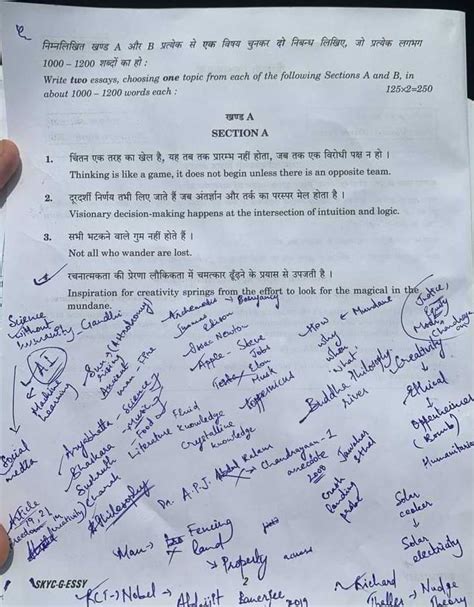 निम्नलिखित खण्ड A और B प्रत्येक से एक विषय चुनकर दो निबन्ध लिखिए, जो प्रत्येक लगभग
1000 – 1200 शब्दों का हो :
Write two essays, choosing one topic from each of the following Sections A and B, in
about 1000 – 1200 words each :
125×2=250
खण्ड A
SECTION A
1. चिंतन एक तरह का खेल है, यह तब तक प्रारम्भ नहीं होता, जब तक एक विरोधी पक्ष न हो ।
Thinking is like a game, it does not begin unless there is an opposite team.
2. दूरदर्शी निर्णय तभी लिए जाते हैं जब अंतर्ज्ञान और तर्क का परस्पर मेल होता है ।
Visionary decision-making happens at the intersection of intuition and logic.
3. सभी भटकने वाले गुम नहीं होते हैं ।
Not all who wander are lost.
रचनात्मकता की प्रेरणा लौकिकता में चमत्कार ढूँढ़ने के प्रयास से उपजती है ।
Inspiration for creativity springs from the effort to look for the magical in the
mundane.
Science
without
Humanity → Gandhi
AI
Machine
Learning
Social
media
Article
19, 21
freedom
Archemedes → Buoyancy
Edison
Isaac Newton
Apple – Steve
Jobs
Tesla – Elon
Musk
Copernicus
Ancient
man – Fire
Aryabhatta – Science
Charaka – Music
Sushruta – Food
Literature
Fluid
knowledge
Crystalline
knowledge
Philosophy
How → Mundane
why
when
'What'
Buddha Philosophy:
river
Justice,
Creativity
Ethical
Oppenheimer
(Bomb)
Humanitarian
Dr. A.P.J. Abdul Kalam
→ Chandrayaan-1
anecdote
2008
Crash
landing
probe
Solar
cooker
Solar
electricity
Man → Fencing
land
→ Property
SKYC-G-ESSY
2
RCT → Nobel → Abhijit Banerjee
2019
Richard
Thaler → Nudge
Theory